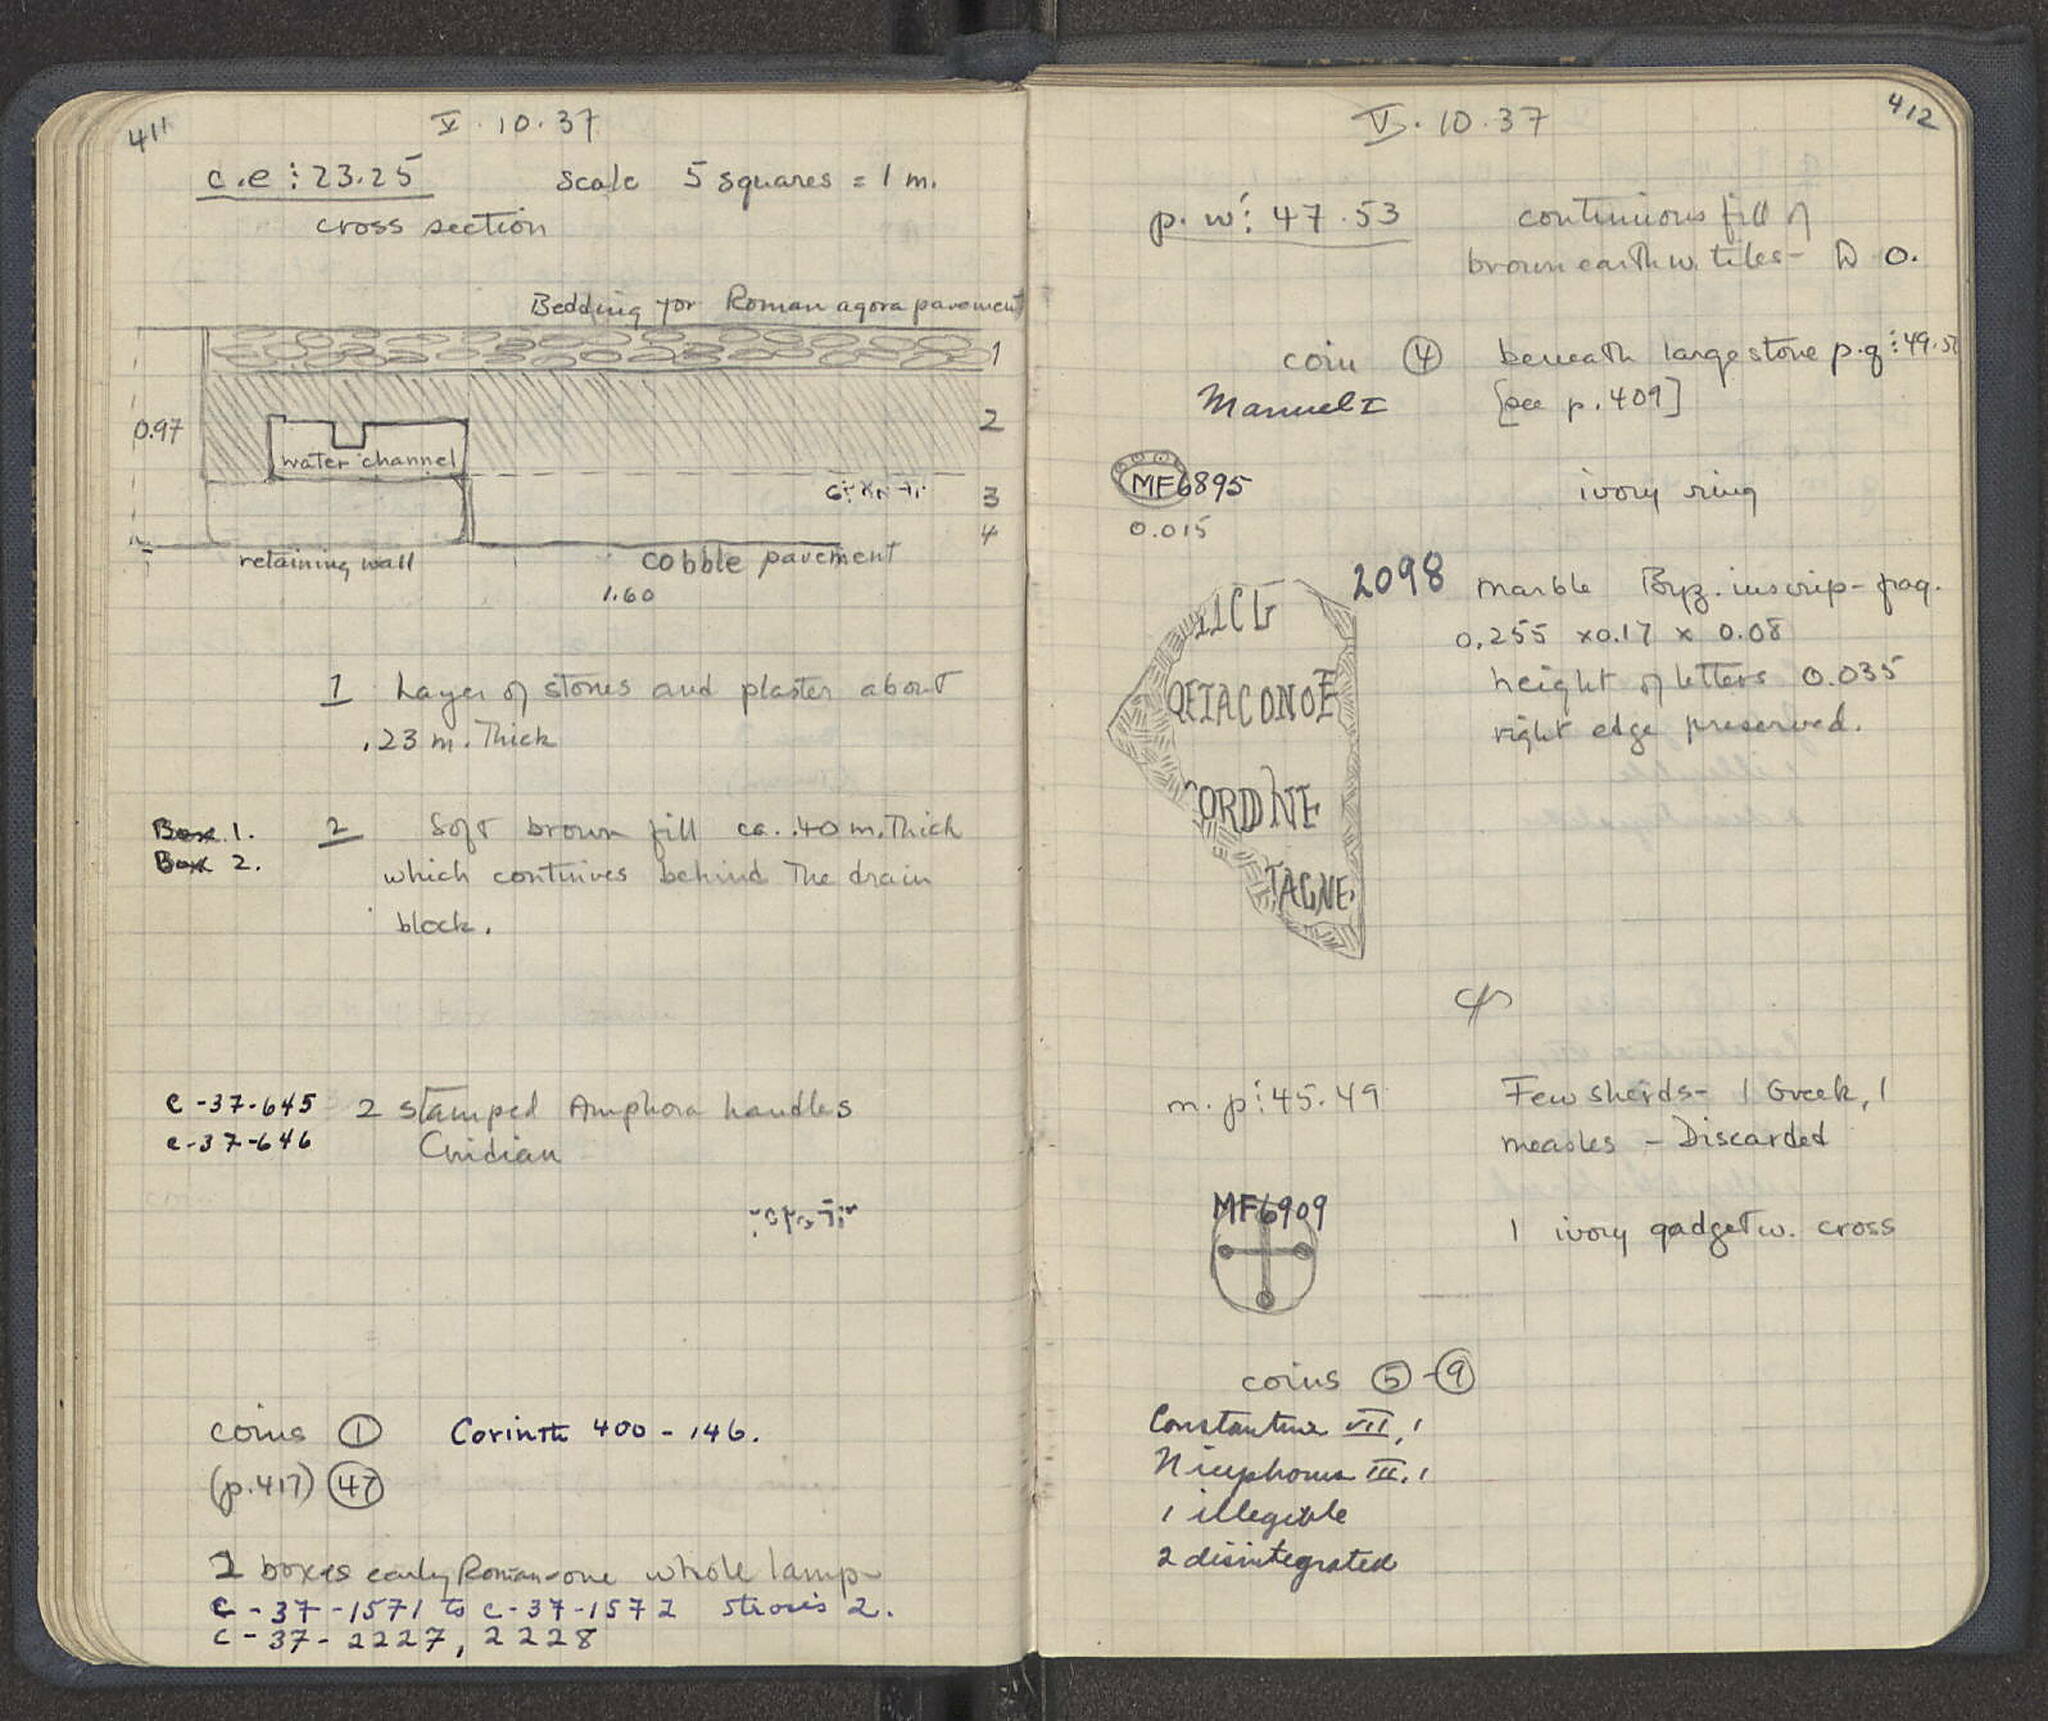 411
V. 10. 37
c.e : 23.25
Scale 5 squares = 1 m.
cross section
Bedding for Roman agora pavement
1
0.97
2
water channel
3
4
retaining wall
cobble pavement
1.60
1 Layer of stones and plaster about
.23 m. Thick
Box 1.
2 Soft brown fill ca. .40 m. Thick
Box 2.
which continues behind The drain
block.
C-37-645 2 stamped Amphora handles
C-37-646 Cnidian
coins ① Corinth 400 - 146.
(p.417) ㊼
2 boxes early Roman - one whole lamp
C-37-1571 to C-37-1572 Strosis 2.
C-37-2227, 2228
412
V. 10. 37
p. w : 47.53 continuous fill of
brown earth w. tiles -
coin ④ beneath large stone p.q : 49.
Manuel I [see p. 409]
MF 6895 ivory ring
0.015
2098 marble Byz. inscrip - frag.
0.255 x 0.17 x 0.08
height of letters 0.035
right edge preserved.
ORDINE
TAGNE
m. p : 45.49 Few sherds - 1 Greek, 1
measles - Discarded
MF 6909
1 ivory gadget w. cross
coins ⑤ - ⑨
Constantine VII, 1
Nicephorus III, 1
1 illegible
2 disintegrated